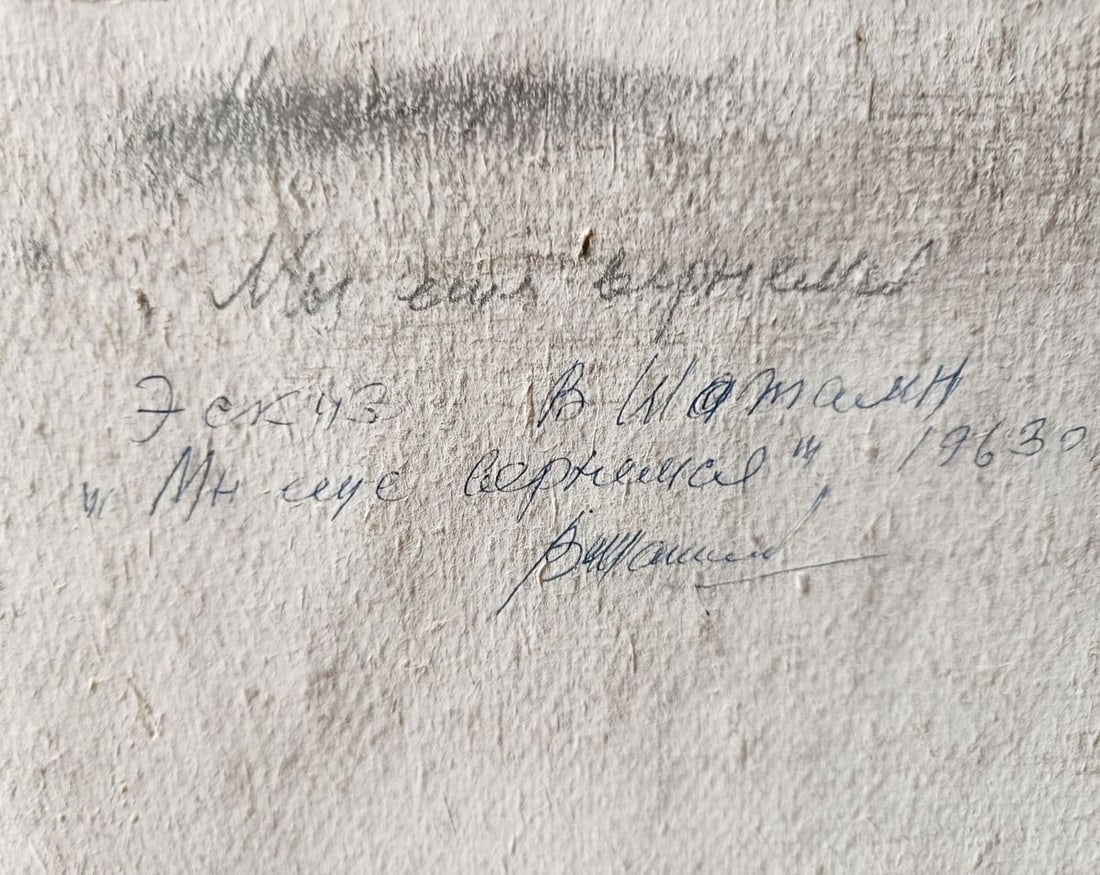 Мы ещё вернемся
Эскиз В Шаталин
"Мы еще вернемся", 1963г
ВШаталин